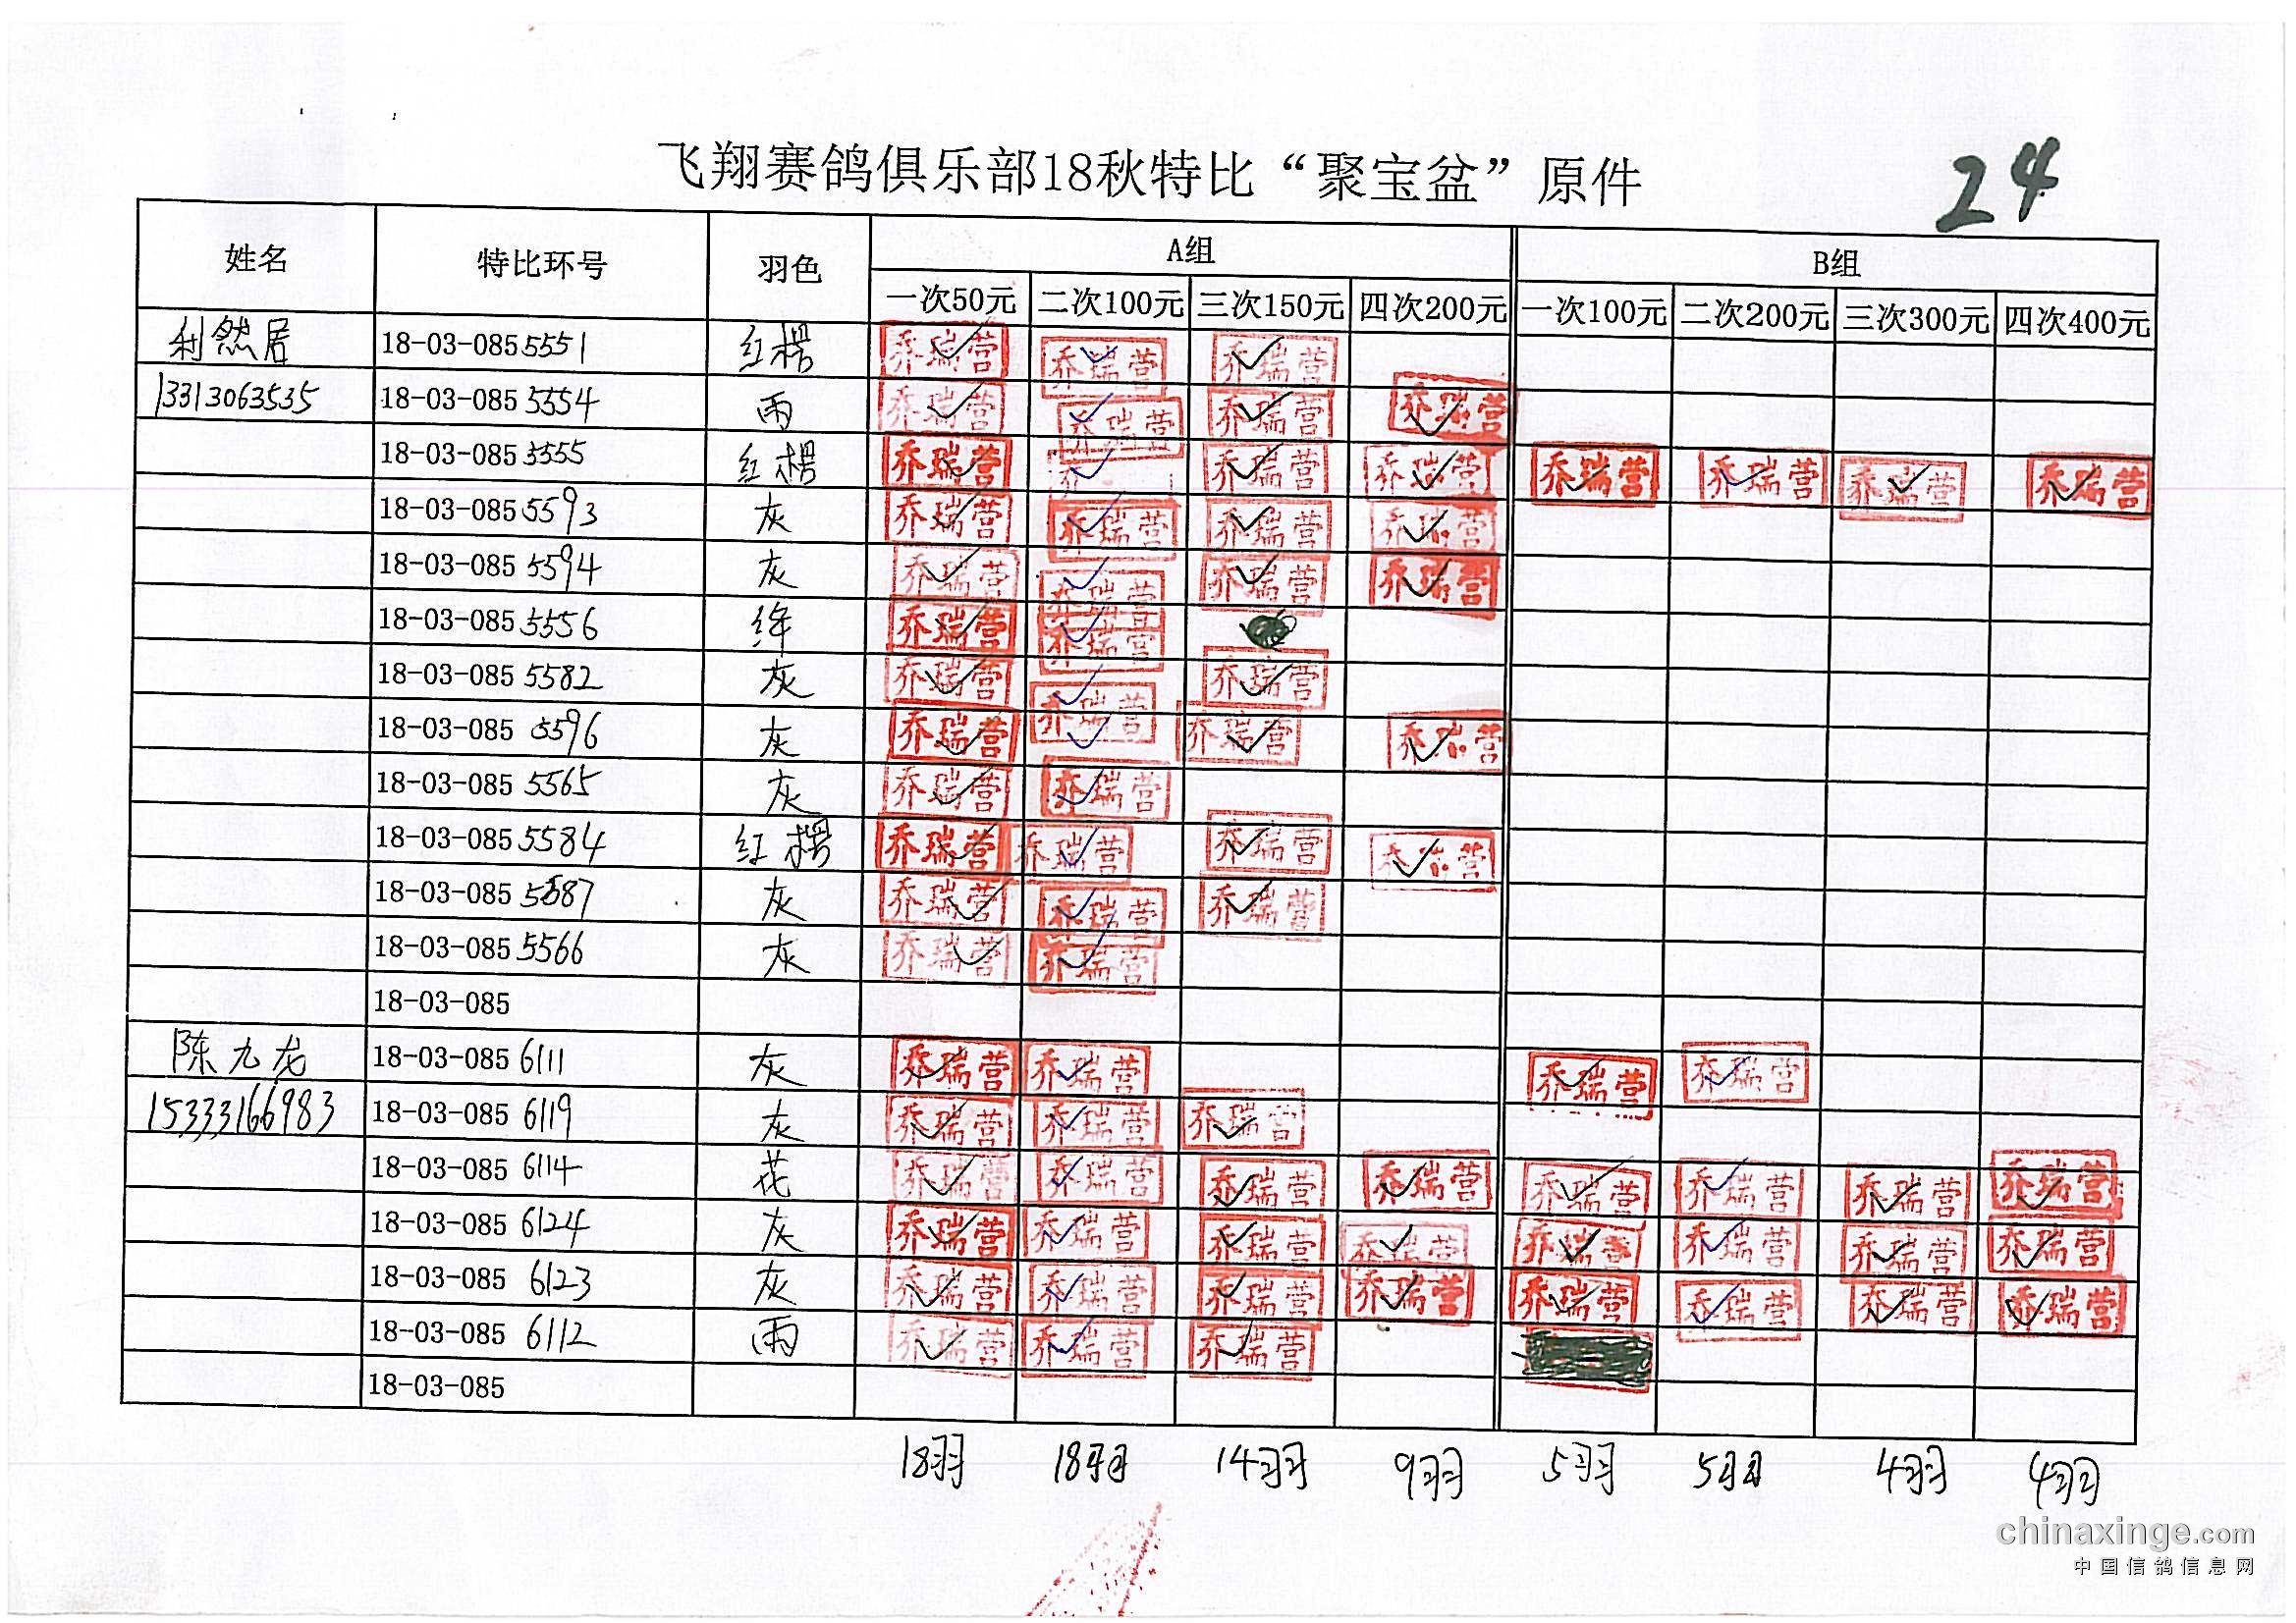 飞翔赛鸽俱乐部18秋特比“聚宝盆”原件
24
姓名 特比环号 羽色 A组 B组
一次50元 二次100元 三次150元 四次200元 一次100元 二次200元 三次300元 四次400元
利然居 18-03-085 5551 红楞 乔瑞营 乔瑞营 乔瑞营
13313063535 18-03-085 5554 雨 乔瑞营 乔瑞营 乔瑞营 乔瑞营
18-03-085 5555 红楞 乔瑞营 乔瑞营 乔瑞营 乔瑞营 乔瑞营 乔瑞营 乔瑞营
18-03-085 5593 灰 乔瑞营 乔瑞营 乔瑞营 乔瑞营
18-03-085 5594 灰 乔瑞营 乔瑞营 乔瑞营 乔瑞营
18-03-085 5556 绛 乔瑞营 乔瑞营
18-03-085 5582 灰 乔瑞营 乔瑞营 乔瑞营
18-03-085 5596 灰 乔瑞营 乔瑞营 乔瑞营
18-03-085 5565 灰 乔瑞营 乔瑞营
18-03-085 5584 红楞 乔瑞营 乔瑞营 乔瑞营 乔瑞营
18-03-085 5587 灰 乔瑞营 乔瑞营 乔瑞营
18-03-085 5566 灰 乔瑞营 乔瑞营
18-03-085
陈九龙 18-03-085 6111 灰 乔瑞营 乔瑞营 乔瑞营 乔瑞营
15333166983 18-03-085 6119 灰 乔瑞营 乔瑞营 乔瑞营
18-03-085 6114 花 乔瑞营 乔瑞营 乔瑞营 乔瑞营 乔瑞营 乔瑞营 乔瑞营 乔瑞营
18-03-085 6124 灰 乔瑞营 乔瑞营 乔瑞营 乔瑞营 乔瑞营 乔瑞营 乔瑞营 乔瑞营
18-03-085 6123 灰 乔瑞营 乔瑞营 乔瑞营 乔瑞营 乔瑞营 乔瑞营 乔瑞营 乔瑞营
18-03-085 6112 雨 乔瑞营 乔瑞营 乔瑞营
18-03-085
18羽 18羽 14羽 9羽 5羽 5羽 4羽 4羽
chinaxinge.com
中国信鸽信息网